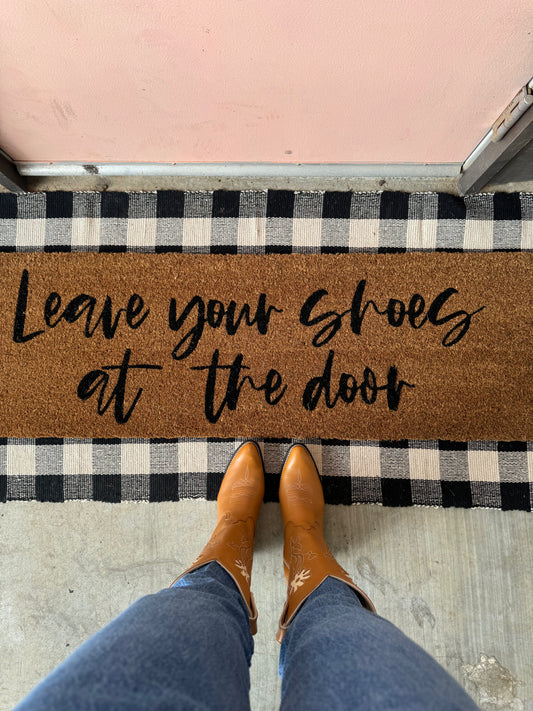 Leave your shoes
at the door